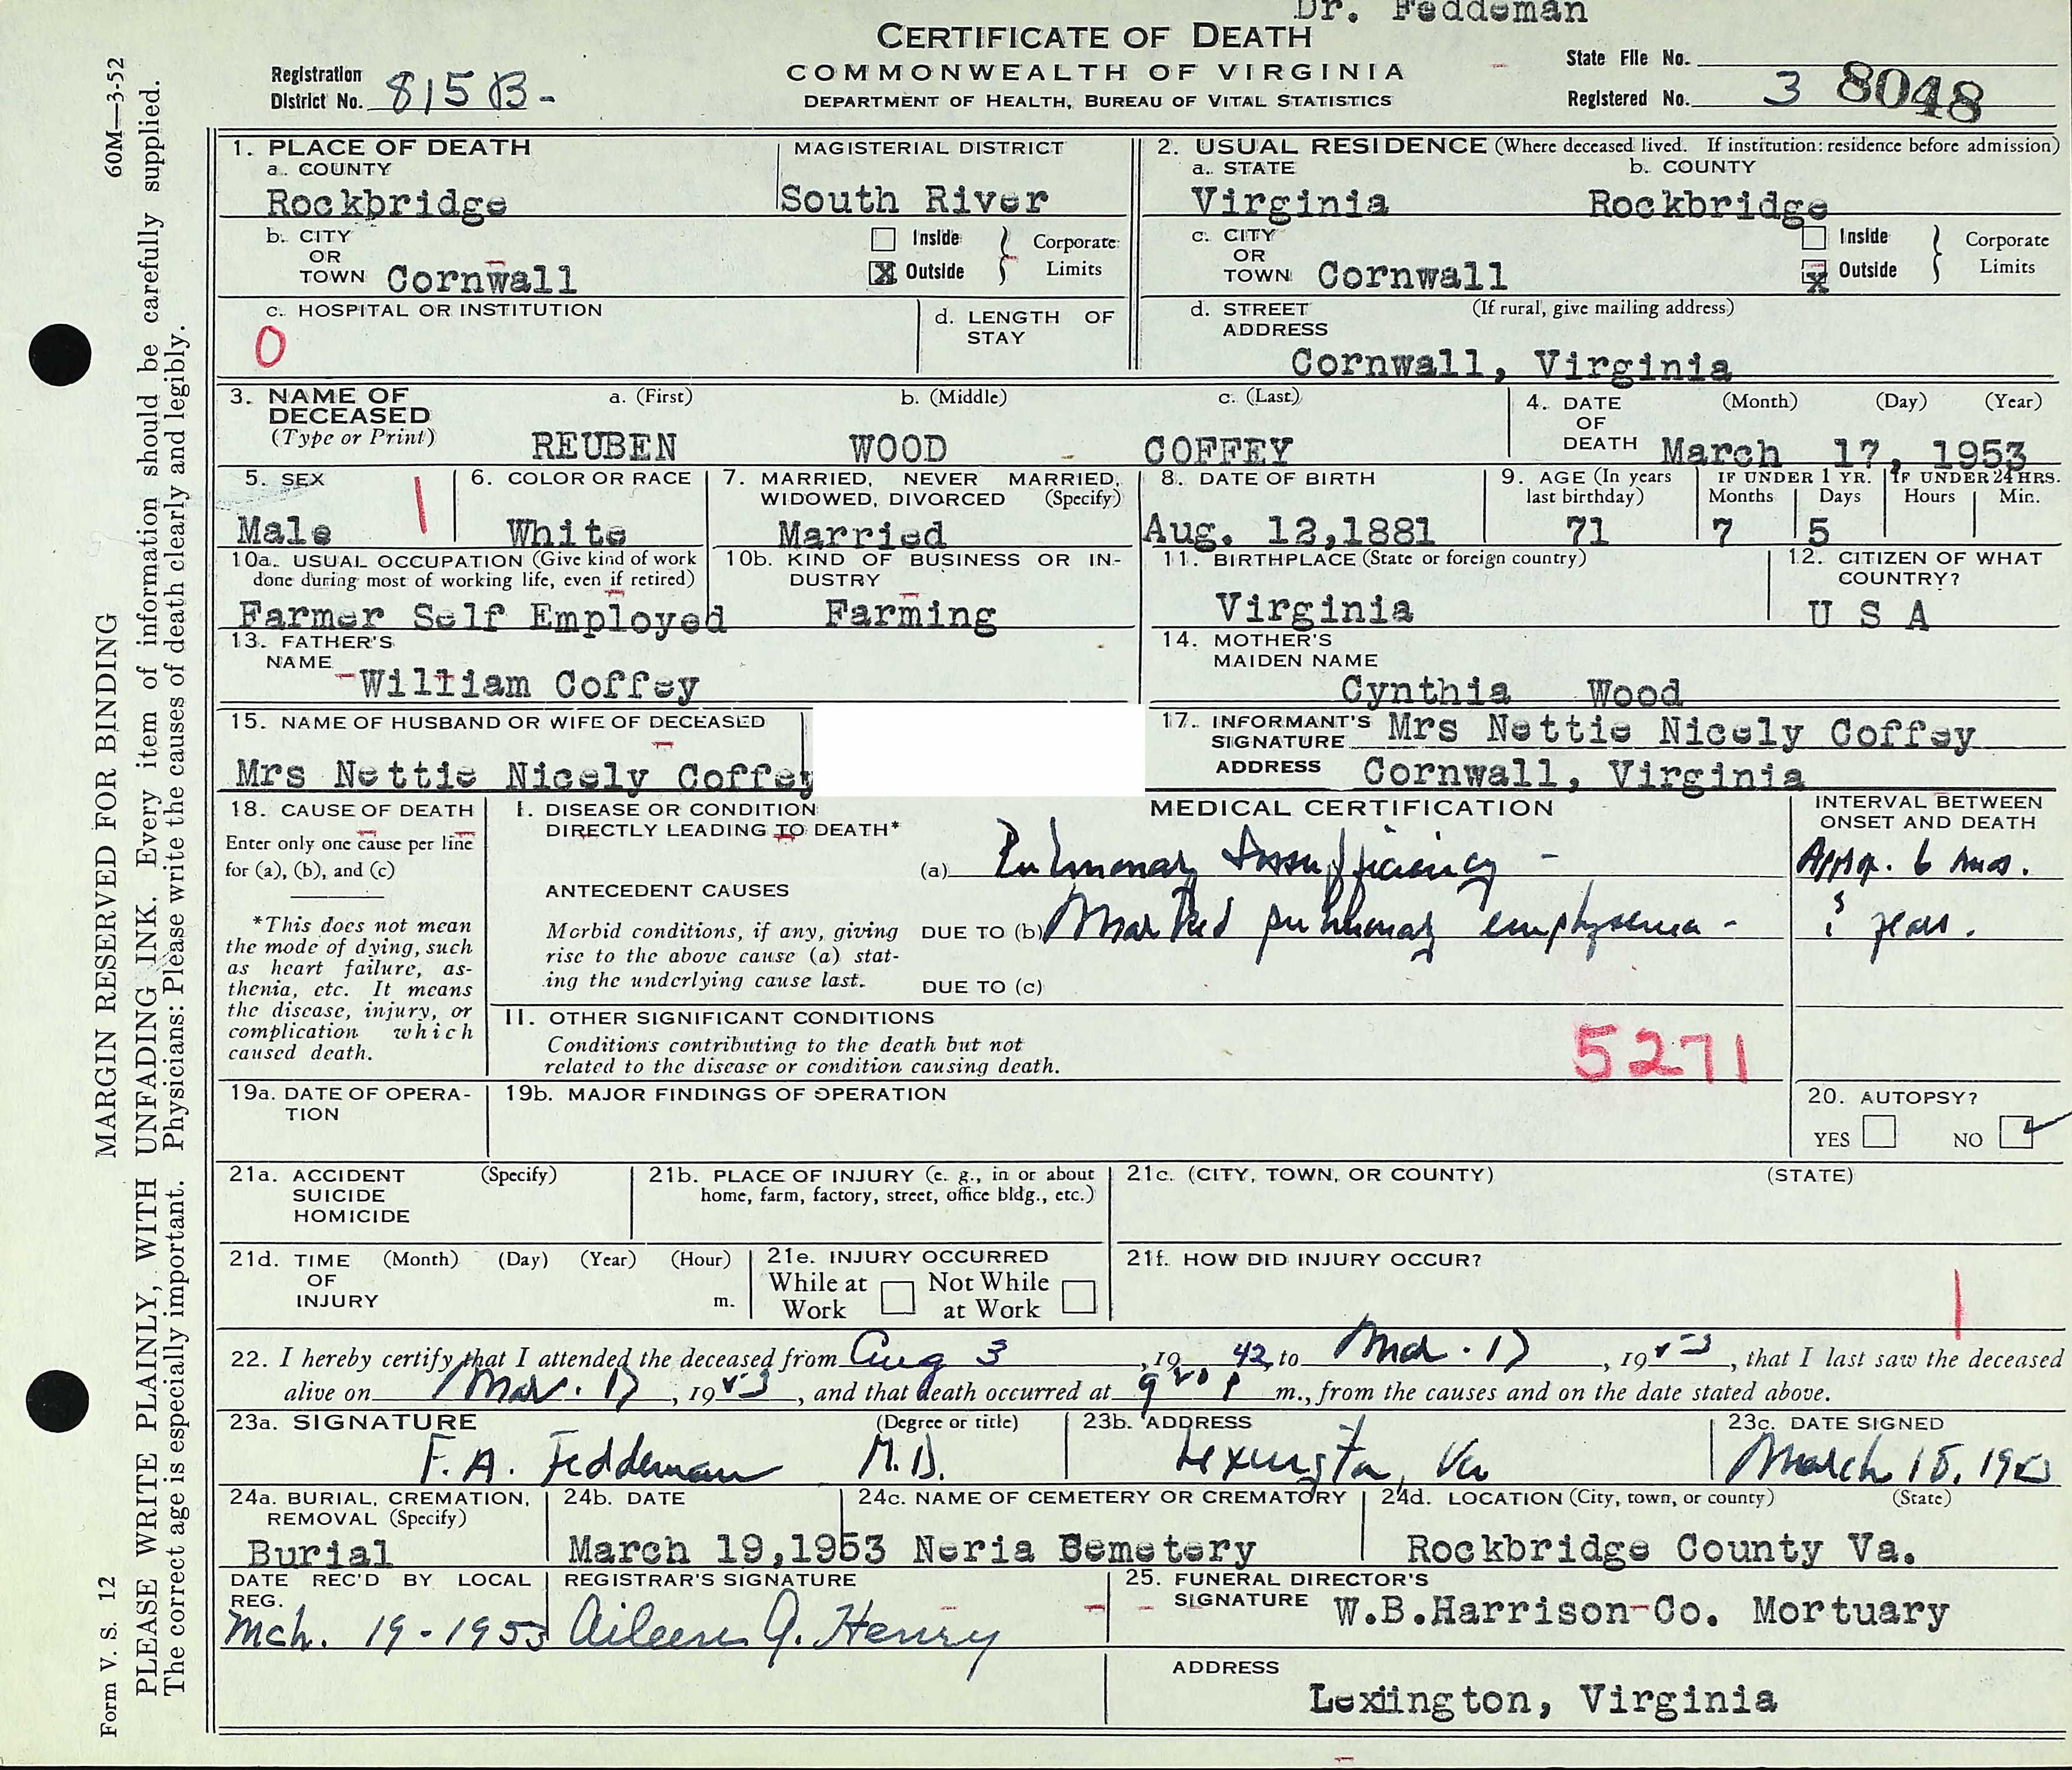 Dr. Feddeman
CERTIFICATE OF DEATH
COMMONWEALTH OF VIRGINIA
DEPARTMENT OF HEALTH, BUREAU OF VITAL STATISTICS
Registration District No. 815 B -
State File No.
Registered No. 3 8048
60M—3-52
1. PLACE OF DEATH
a. COUNTY
Rockbridge
MAGISTERIAL DISTRICT
South River
b. CITY OR TOWN Cornwall
Inside
X Outside
Corporate Limits
c. HOSPITAL OR INSTITUTION
0
d. LENGTH OF STAY
2. USUAL RESIDENCE (Where deceased lived. If institution: residence before admission)
a. STATE
Virginia
b. COUNTY
Rockbridge
c. CITY OR TOWN Cornwall
Inside
X Outside
Corporate Limits
d. STREET ADDRESS (If rural, give mailing address)
Cornwall, Virginia
3. NAME OF DECEASED (Type or Print)
a. (First) b. (Middle) c. (Last)
REUBEN WOOD COFFEY
4. DATE OF DEATH (Month) (Day) (Year)
March 17, 1953
5. SEX
Male
6. COLOR OR RACE
White
7. MARRIED, NEVER MARRIED, WIDOWED, DIVORCED (Specify)
Married
8. DATE OF BIRTH
Aug. 12,1881
9. AGE (In years last birthday)
71
IF UNDER 1 YR.
Months Days
7 5
IF UNDER 24 HRS.
Hours Min.
10a. USUAL OCCUPATION (Give kind of work done during most of working life, even if retired)
Farmer Self Employed
10b. KIND OF BUSINESS OR INDUSTRY
Farming
11. BIRTHPLACE (State or foreign country)
Virginia
12. CITIZEN OF WHAT COUNTRY?
U S A
13. FATHER'S NAME
William Coffey
14. MOTHER'S MAIDEN NAME
Cynthia Wood
15. NAME OF HUSBAND OR WIFE OF DECEASED
Mrs Nettie Nicely Coffey
17. INFORMANT'S SIGNATURE Mrs Nettie Nicely Coffey
ADDRESS Cornwall, Virginia
18. CAUSE OF DEATH
Enter only one cause per line for (a), (b), and (c)
*This does not mean the mode of dying, such as heart failure, asthenia, etc. It means the disease, injury, or complication which caused death.
MEDICAL CERTIFICATION
I. DISEASE OR CONDITION DIRECTLY LEADING TO DEATH*
(a) Pulmonary Insufficiency -
ANTECEDENT CAUSES
Morbid conditions, if any, giving rise to the above cause (a) stating the underlying cause last.
DUE TO (b) Marked pulmonary emphysema -
DUE TO (c)
INTERVAL BETWEEN ONSET AND DEATH
Approx. 6 mos.
? years.
II. OTHER SIGNIFICANT CONDITIONS
Conditions contributing to the death but not related to the disease or condition causing death.
5271
19a. DATE OF OPERATION
19b. MAJOR FINDINGS OF OPERATION
20. AUTOPSY?
YES NO
21a. ACCIDENT SUICIDE HOMICIDE (Specify)
21b. PLACE OF INJURY (e. g., in or about home, farm, factory, street, office bldg., etc.)
21c. (CITY, TOWN, OR COUNTY) (STATE)
21d. TIME OF INJURY (Month) (Day) (Year) (Hour) m.
21e. INJURY OCCURRED
While at Work Not While at Work
21f. HOW DID INJURY OCCUR?
22. I hereby certify that I attended the deceased from Aug 3, 19 42, to Mar. 17, 19 53, that I last saw the deceased
alive on Mar. 17, 19 53, and that death occurred at 9 P m., from the causes and on the date stated above.
23a. SIGNATURE (Degree or title)
F. A. Feddeman M.D.
23b. ADDRESS
Lexington, Va
23c. DATE SIGNED
March 18, 1953
24a. BURIAL, CREMATION, REMOVAL (Specify)
Burial
24b. DATE
March 19,1953
24c. NAME OF CEMETERY OR CREMATORY
Neria Cemetery
24d. LOCATION (City, town, or county) (State)
Rockbridge County Va.
DATE REC'D BY LOCAL REG.
Mch. 19-1953
REGISTRAR'S SIGNATURE
Aileen G. Henry
25. FUNERAL DIRECTOR'S SIGNATURE W.B.Harrison-Co. Mortuary
ADDRESS
Lexiington, Virginia
MARGIN RESERVED FOR BINDING
PLEASE WRITE PLAINLY, WITH UNFADING INK. Every item of information should be carefully supplied.
The correct age is especially important. Physicians: Please write the causes of death clearly and legibly.
Form V. S. 12